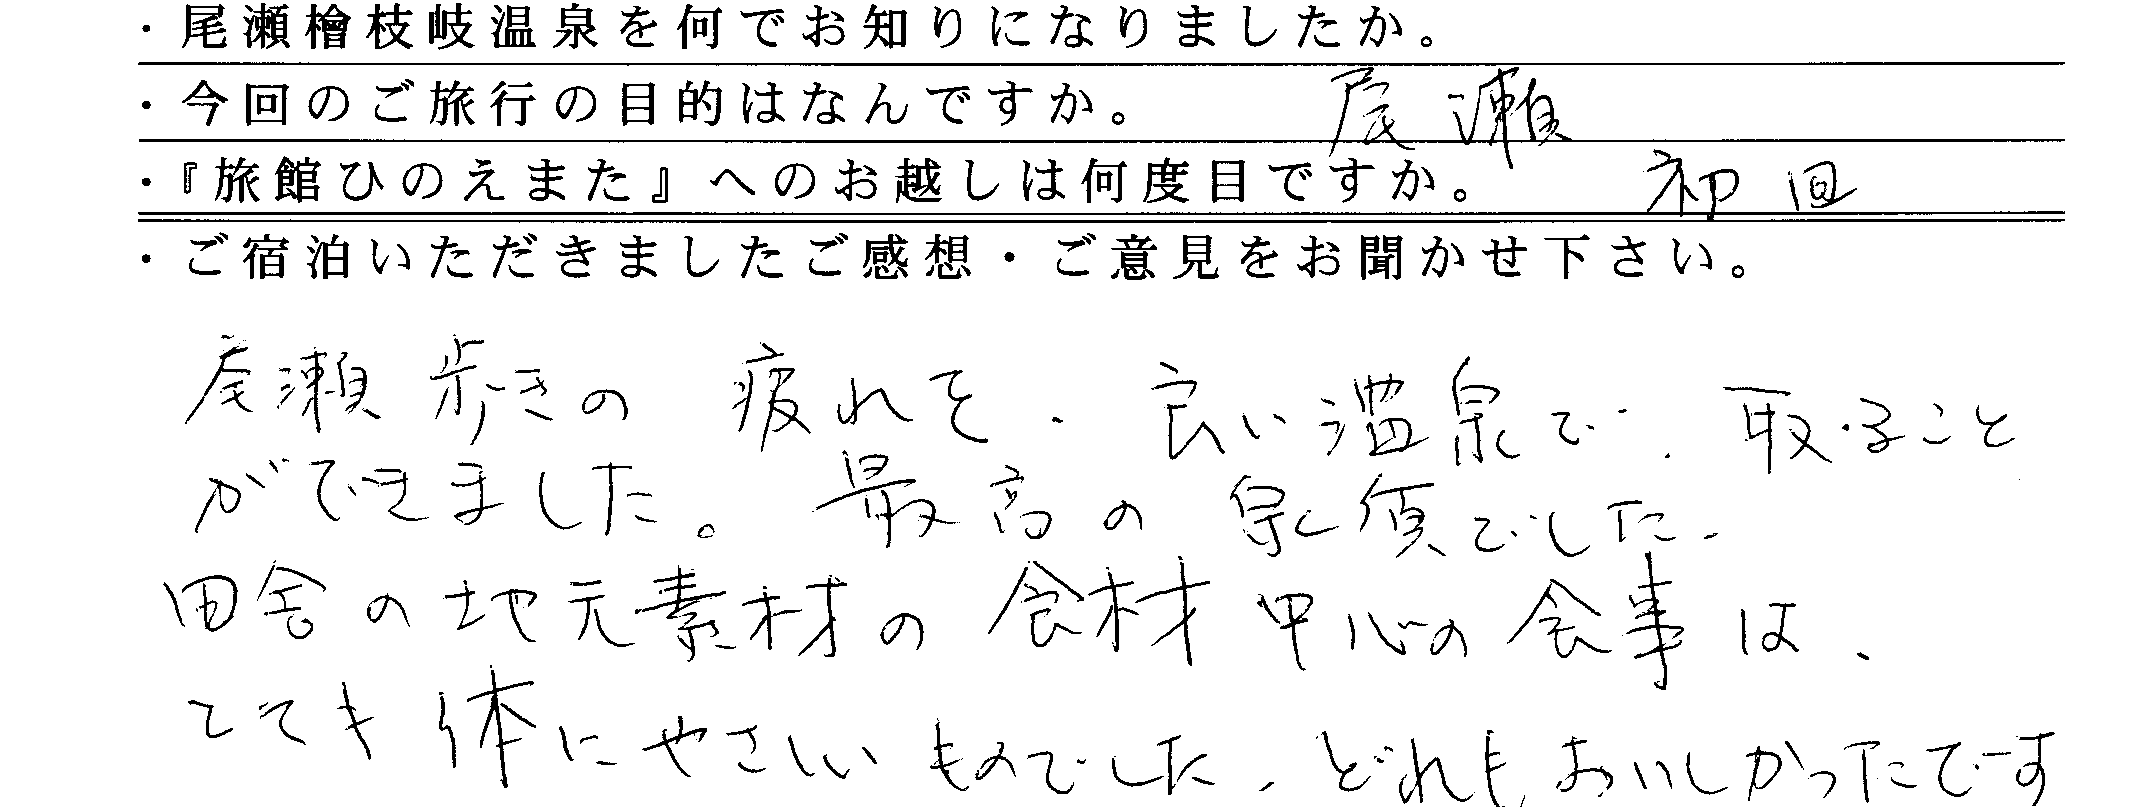 ・尾瀬檜枝岐温泉を何でお知りになりましたか。
・今回のご旅行の目的はなんですか。 尾瀬
・『旅館ひのえまた』へのお越しは何度目ですか。 初回
・ご宿泊いただきましたご感想・ご意見をお聞かせ下さい。
尾瀬歩きの疲れを、良い温泉で、取ること
ができました。最高の泉質でした。
田舎の地元素材の食材中心の食事は、
とても体にやさしいものでした、どれもおいしかったです